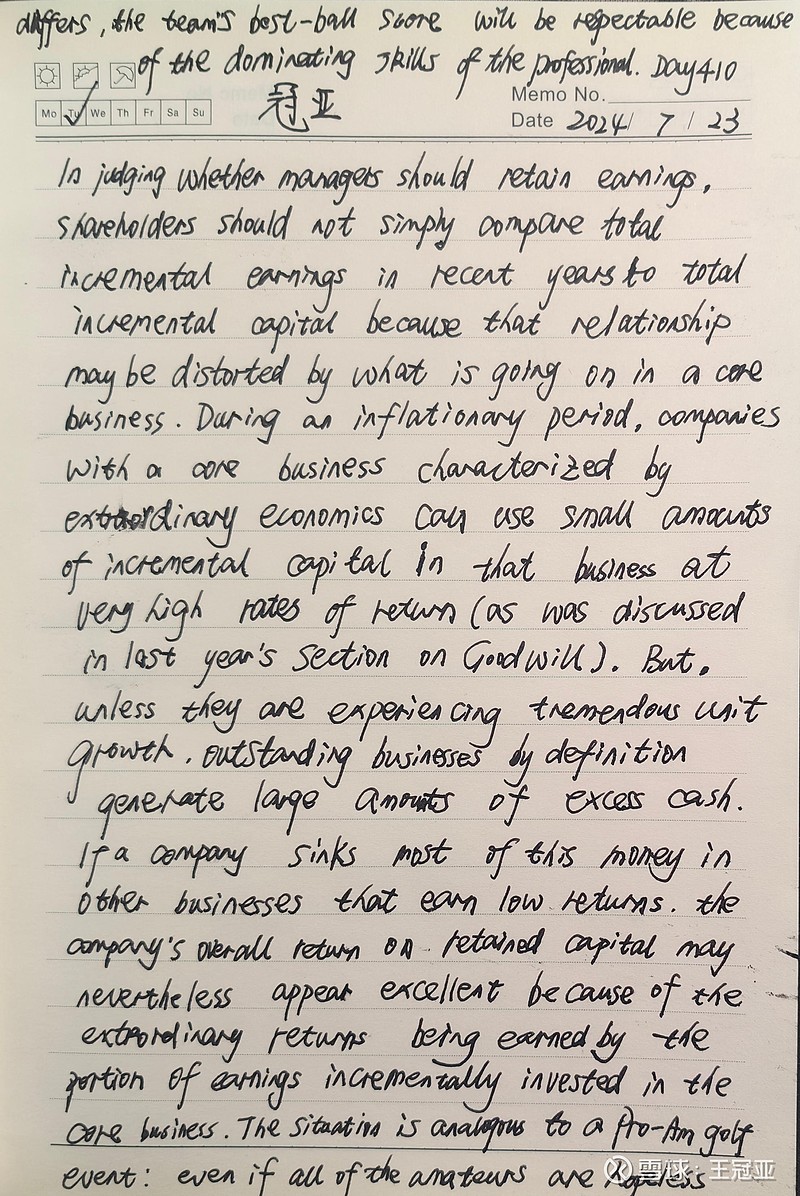 differs, the team's best-ball score will be respectable because
of the dominating skills of the professional. Day410
冠亚
Memo No.
Mo Tu We Th Fr Sa Su
Date 2024/ 7 / 23
In judging whether managers should retain earnings,
shareholders should not simply compare total
incremental earnings in recent years to total
incremental capital because that relationship
may be distorted by what is going on in a core
business. During an inflationary period, companies
with a core business characterized by
extraordinary economics can use small amounts
of incremental capital in that business at
very high rates of return (as was discussed
in last year's section on Goodwill). But,
unless they are experiencing tremendous unit
growth, outstanding businesses by definition
generate large amounts of excess cash.
If a company sinks most of this money in
other businesses that earn low returns, the
company's overall return on retained capital may
nevertheless appear excellent because of the
extrordinary returns being earned by the
portion of earnings incrementally invested in the
core business. The situation is analogous to a Pro-Am golf
event: even if all of the amateurs are hopeless
雪球:王冠亚